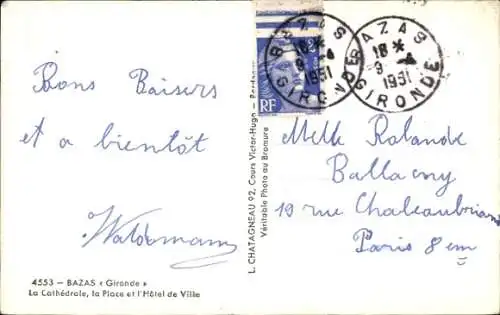 Bons Baisers
et a bientôt
Waldemann
4553 — BAZAS « Gironde »
La Cathédrale, la Place et l'Hôtel de Ville
L. CHATAGNEAU 92, Cours Victor-Hugo - Bordeaux
Véritable Photo au Bromure
RF
BAZAS
18 *
9 - 4
1951
GIRONDE
BAZAS
18 *
9 - 4
1951
GIRONDE
Melle Rolande
Ballacny
19 rue Chateaubriand
Paris 8em